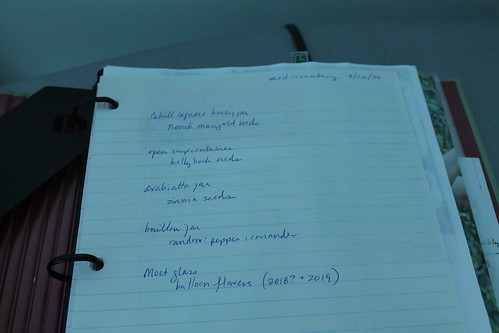 seed inventory 8/20/20
square honey jar
french marigold seeds
open container
hollyhock seeds
arabiatta jar
zinnia seeds
bouillon jar
random: pepper, coriander
Moet glass
balloon flowers (2018? + 2019)